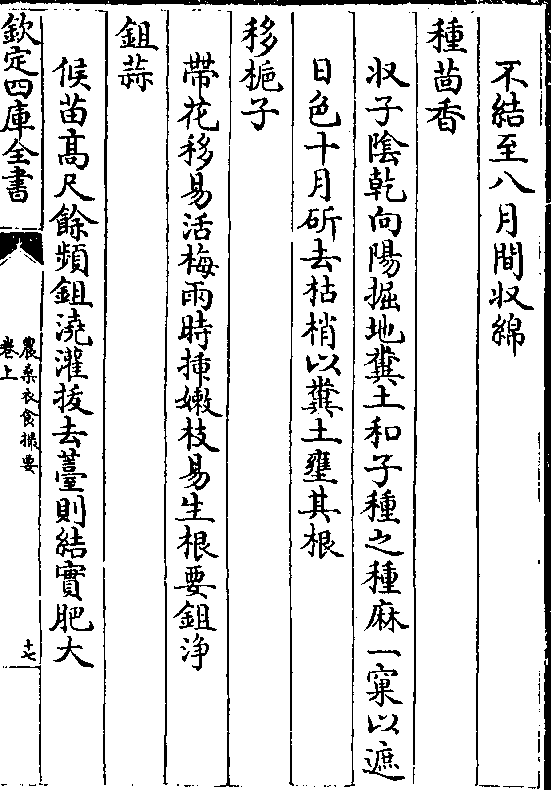 不結至八月間収綿
種茴香
収子陰乾向陽掘地糞土和子種之種麻一窠以遮
日色十月斫去枯梢以糞土壅其根
移梔子
帶花移易活梅雨時揷嫩枝易生根要鉏浄
鉏蒜
候苗高尺餘頻鉏澆灌拔去薹則結實肥大
欽定四庫全書
農桑衣食撮要
卷上
十七